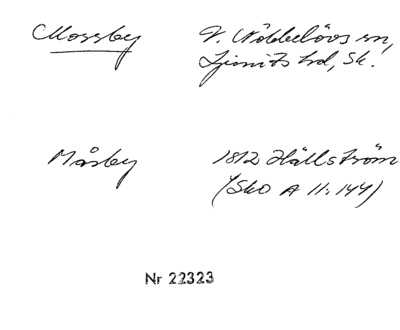 Mossby V. Nöbbelövs sn,
Ljunits hd, Sk.
Måsby 1812 Hällström
(SkO A 11:144)
Nr 22323